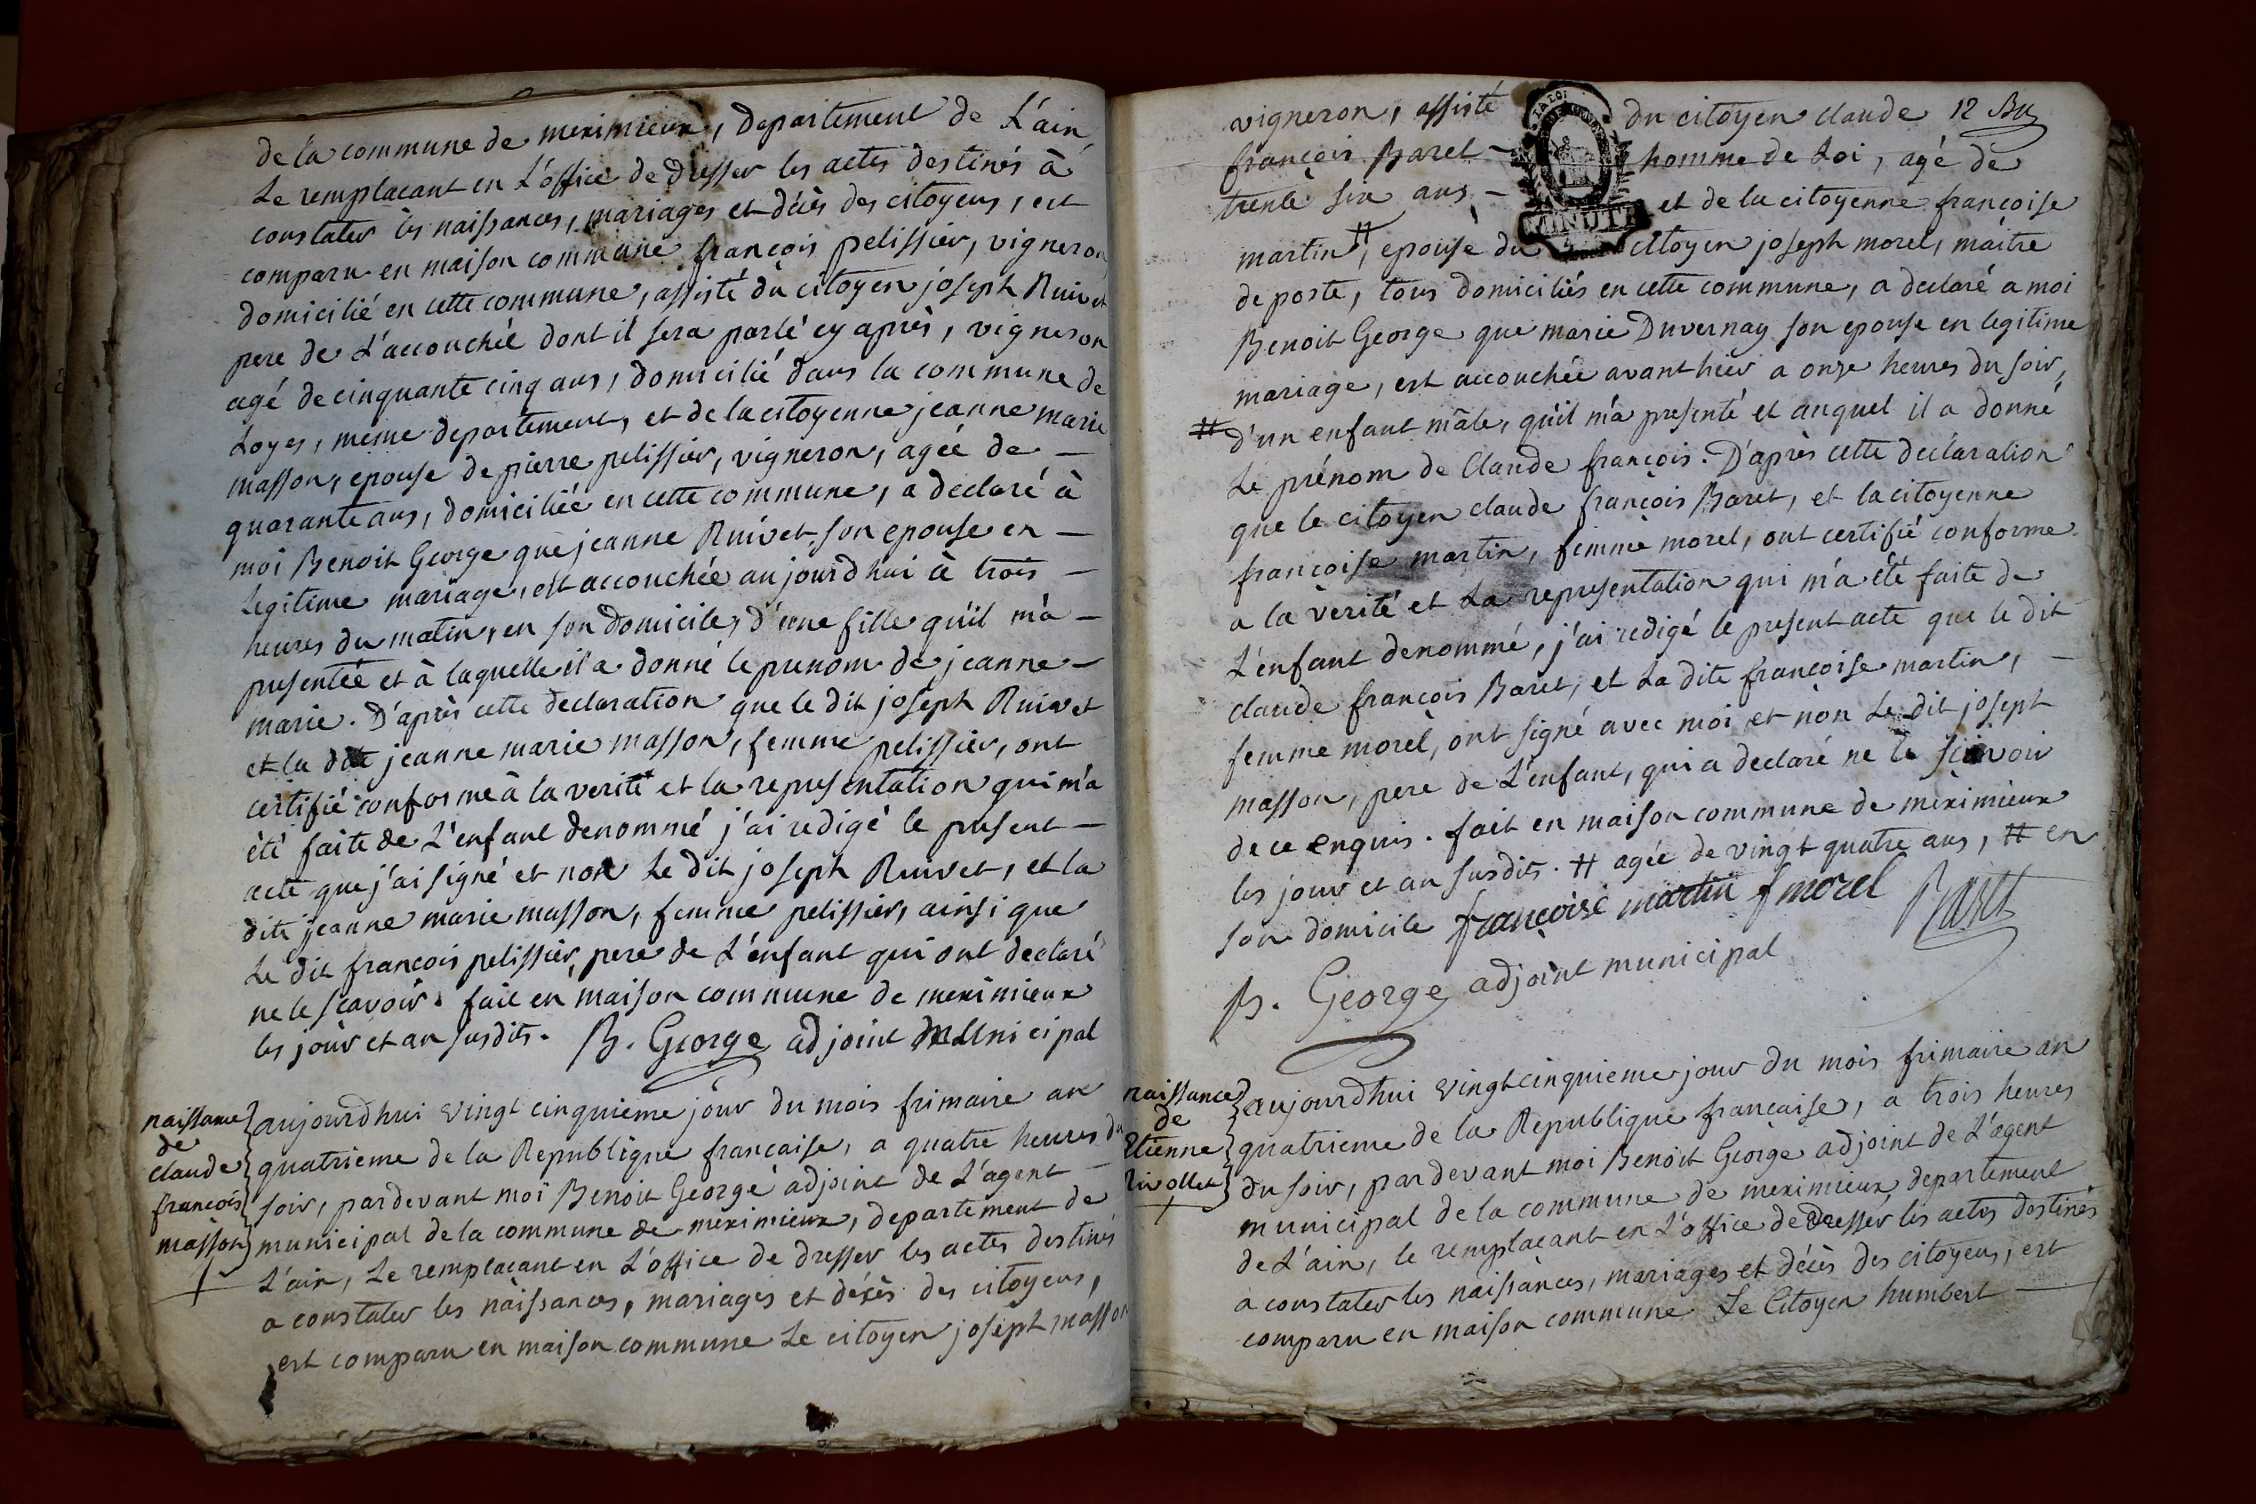 de la commune de meximieux, departement de L'ain
Le remplacant en L'office de dresser les actes destinés à
constater les naissances, mariages et décès des citoyens, est
comparu en maison commune françois pelissier, vigneron,
domicilié en cette commune, assisté du citoyen joseph Ruivet
pere de L'accouchée dont il sera parlé cy après, vigneron
agé de cinquante cinq ans, domicilié dans la commune de
Loyes, meme departement, et de la citoyenne jeanne marie
masson, epouse de pierre pelissier, vigneron, agée de —
quarante ans, domiciliée en cette commune, a declaré à
moi Benoit George que jeanne Ruivet son epouse en —
Legitime mariage, est accouchée aujourdhui à trois —
heures du matin, en son domicile, d'une fille qu'il m'a —
presentée et à laquelle il a donné le prenom de jeanne —
marie. D'après cette declaration que le dit joseph Ruivet
et la dite jeanne marie masson, femme pelissier, ont
certifié conforme à la verité et la representation qui m'a
été faite de L'enfant denommé j'ai redigé le present —
acte que j'ai signé et non Le dit joseph Ruivet, et la
dite jeanne marie masson, femme pelissier, ainsi que
Le dit françois pelissier, pere de L'enfant qui ont declaré
ne le scavoir. fait en maison commune de meximieux
les jour et an susdits. B. George adjoint municipal
naissance
de
claude
françois
masson
aujourdhui vingt cinquieme jour du mois frimaire an
quatrieme de la Republique francaise, a quatre heures du
soir, pardevant moi Benoit George adjoint de L'agent —
municipal de la commune de meximieux, departement de
L'ain, Le remplacant en L'office de dresser les actes destinés
a constater les naissances, mariages et décès des citoyens,
est comparu en maison commune Le citoyen joseph masson
vigneron, assisté du citoyen claude 12
LA LOI
MINUTE
françois Baret — homme de Loi, agé de
trente six ans — et de la citoyenne françoise
martin, # epouse du citoyen joseph morel, maitre
de poste, tous domiciliés en cette commune, a declaré a moi
Benoit George que marie Duvernay son epouse en legitime
mariage, est accouchée avant hier a onze heures du soir,
# d'un enfant mâle, qu'il m'a presenté et auquel il a donné
Le prénom de Claude françois. D'après cette declaration
que le citoyen claude françois Baret, et la citoyenne
françoise martin, femme morel, ont certifié conforme
a la verité et La representation qui m'a été faite de
L'enfant denommé, j'ai redigé le present acte que le dit
claude françois Baret, et La dite francoise martin, —
femme morel, ont signé avec moi et non Le dit joseph
masson, pere de L'enfant, qui a declaré ne le scavoir
de ce enquis. fait en maison commune de meximieux
les jour et an susdits. # agée de vingt quatre ans, # en
son domicile françoise martin f morel Baret
B. George adjoint municipal
naissance
de
Etienne
Rivollet
aujourdhui vingt cinquieme jour du mois frimaire an
quatrieme de la Republique francaise, a trois heures
du soir, pardevant moi Benoit George adjoint de L'agent
municipal de la commune de meximieux, departement
de L'ain, le remplacant en L'office de dresser les actes destinés
a constater les naissances, mariages et décès des citoyens, est
comparu en maison commune Le Citoyen humbert —